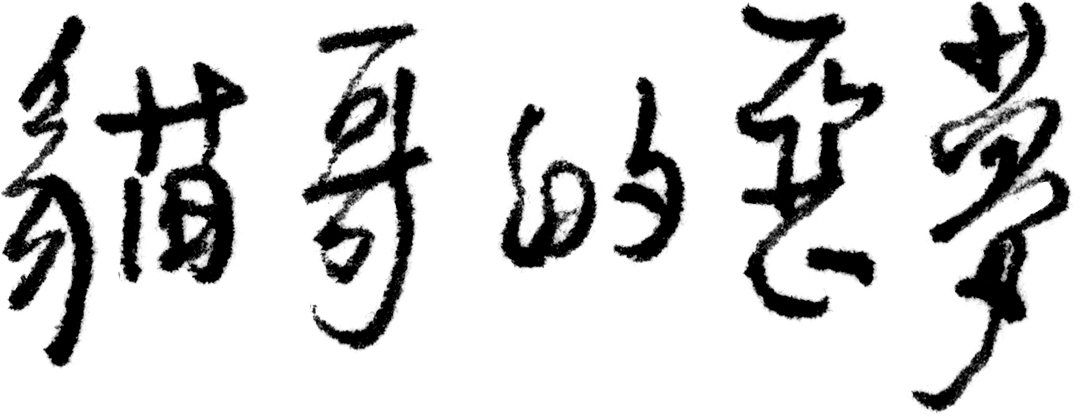 貓哥的惡夢